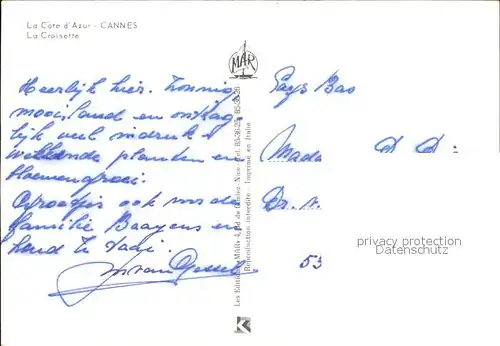 La Côte d'Azur - CANNES
La Croisette
MAR
Heerlijk hier. Zonnig
mooi land en ontzag
lijk veel indruk
wekkende planten en
bloemengroei.
Groetjes ook voor de
familie Baayens en
hond te
Pays Bas
Mada D D:
Dr. v.
53
Les Editions "MAR" - Nice - Tél. 85-36-25 85-36-26
Reproduction interdite - Imprimé en Italie
privacy protection
Datenschutz
K